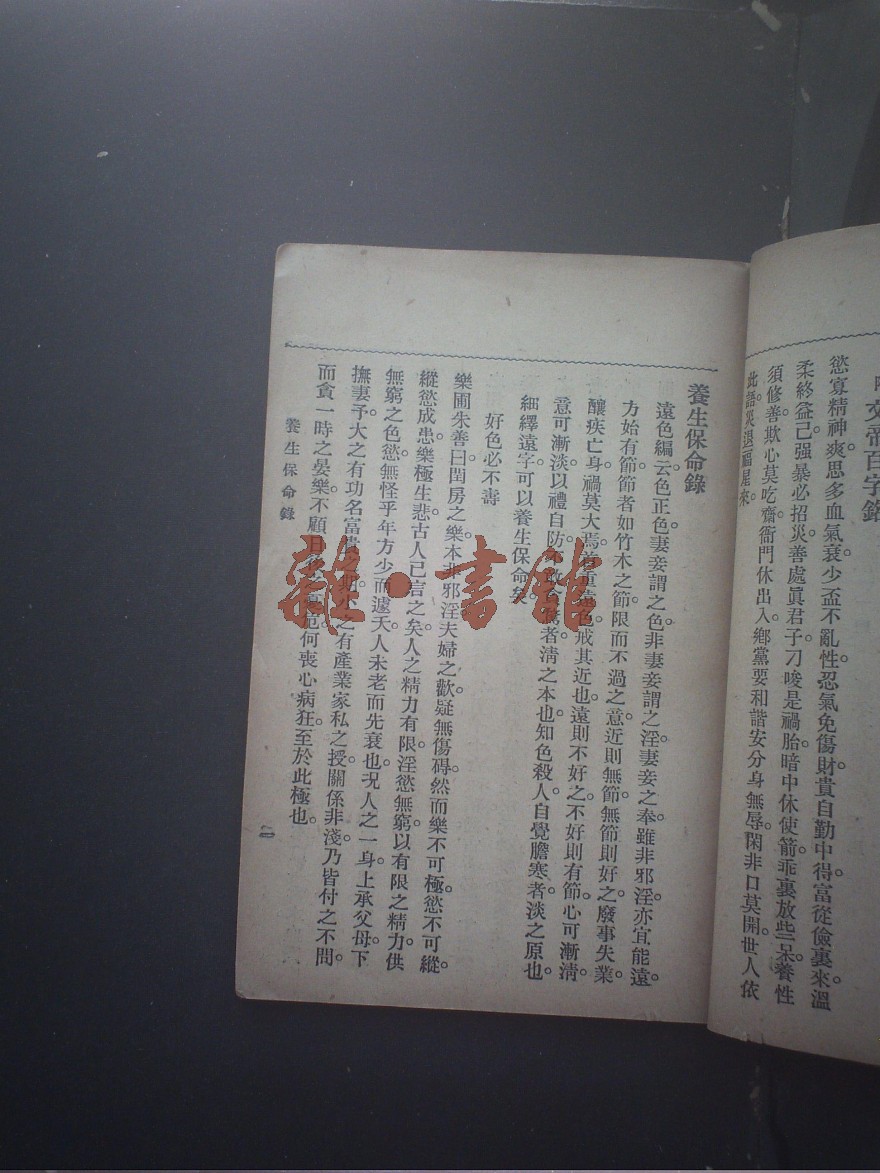 文帝百字銘
慾寡精神爽。思多血氣衰。少盃不亂性。忍氣免傷財。貴自勤中得。富從儉裏來。溫
柔終益己。强暴必招災。善處眞君子。刁唆是禍胎。暗中休使箭。乖裏放些呆。養性
須修善。欺心莫吃齋。衙門休出入。鄉黨要和諧。安分身無辱。閑非口莫開。世人依
此語。災退福星來。
養生保命錄
遠色編云。色正色妻妾謂之色。非妻妾謂之淫。妻妾之奉。雖非邪淫。亦宜能遠。
方始有節。節者如竹木之節。限而不過之意。近則無節。無節則好之。廢事失業。
釀疾亡身。禍莫大焉。着重遠色。戒其近也。遠則不好之。不好則有節。心可漸淸。
意可漸淡。以禮自防。不敢 者。淸之本也。知色殺人。自覺膽寒者。淡之原也。
細繹遠字。可以養生保命矣。
好色必不壽
樂圃朱善曰。閨房之樂。本非邪淫。夫婦之歡。疑無傷碍。然而樂不可極。慾不可縱。
縱慾成患。樂極生悲。古人已言之矣。人之精力有限。淫慾無窮。以有限之精力。供
無窮之色慾。無怪乎年方少而遽夭。人未老而先衰也。况人之一身。上承父母。下
撫妻予。大之有功名富貴 。小之有產業家私之授。關係非淺。乃皆付之不問。
而貪一時之晏樂。不顧日後 。何喪心病狂。至於此極也。
養生保命錄
雜·書館